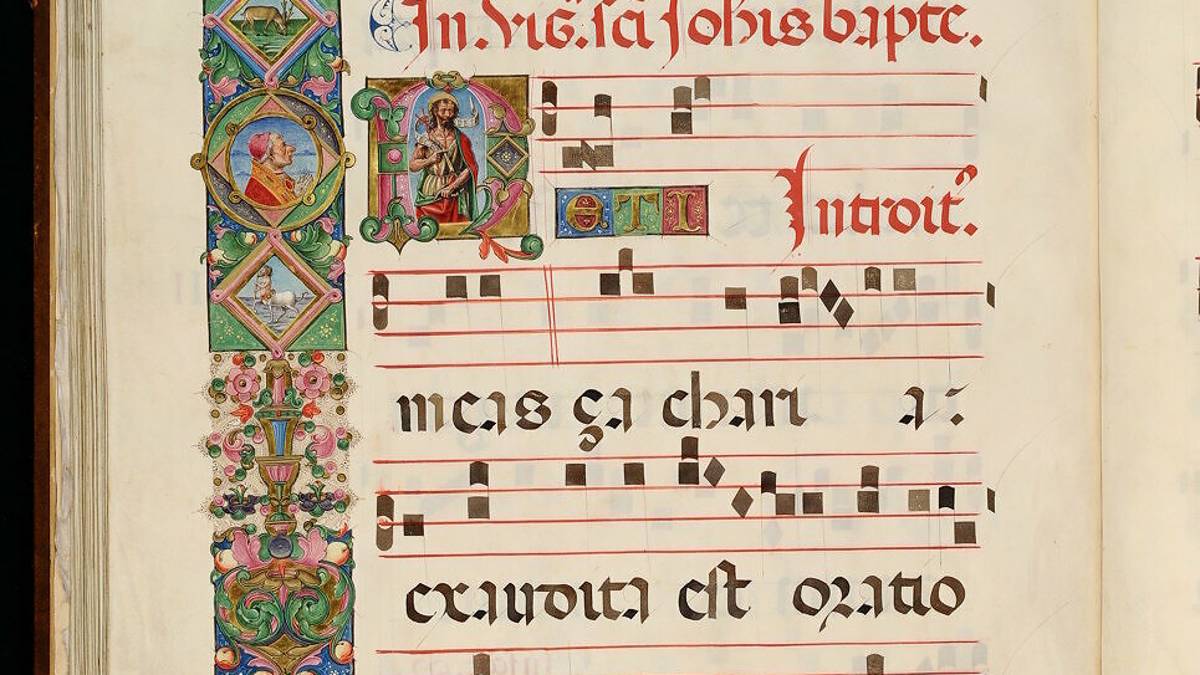 In. Vig̃. sc̃i Johis bapte.
NETI
Introit᷒.
meas ça chari a:
exaudita est oratio